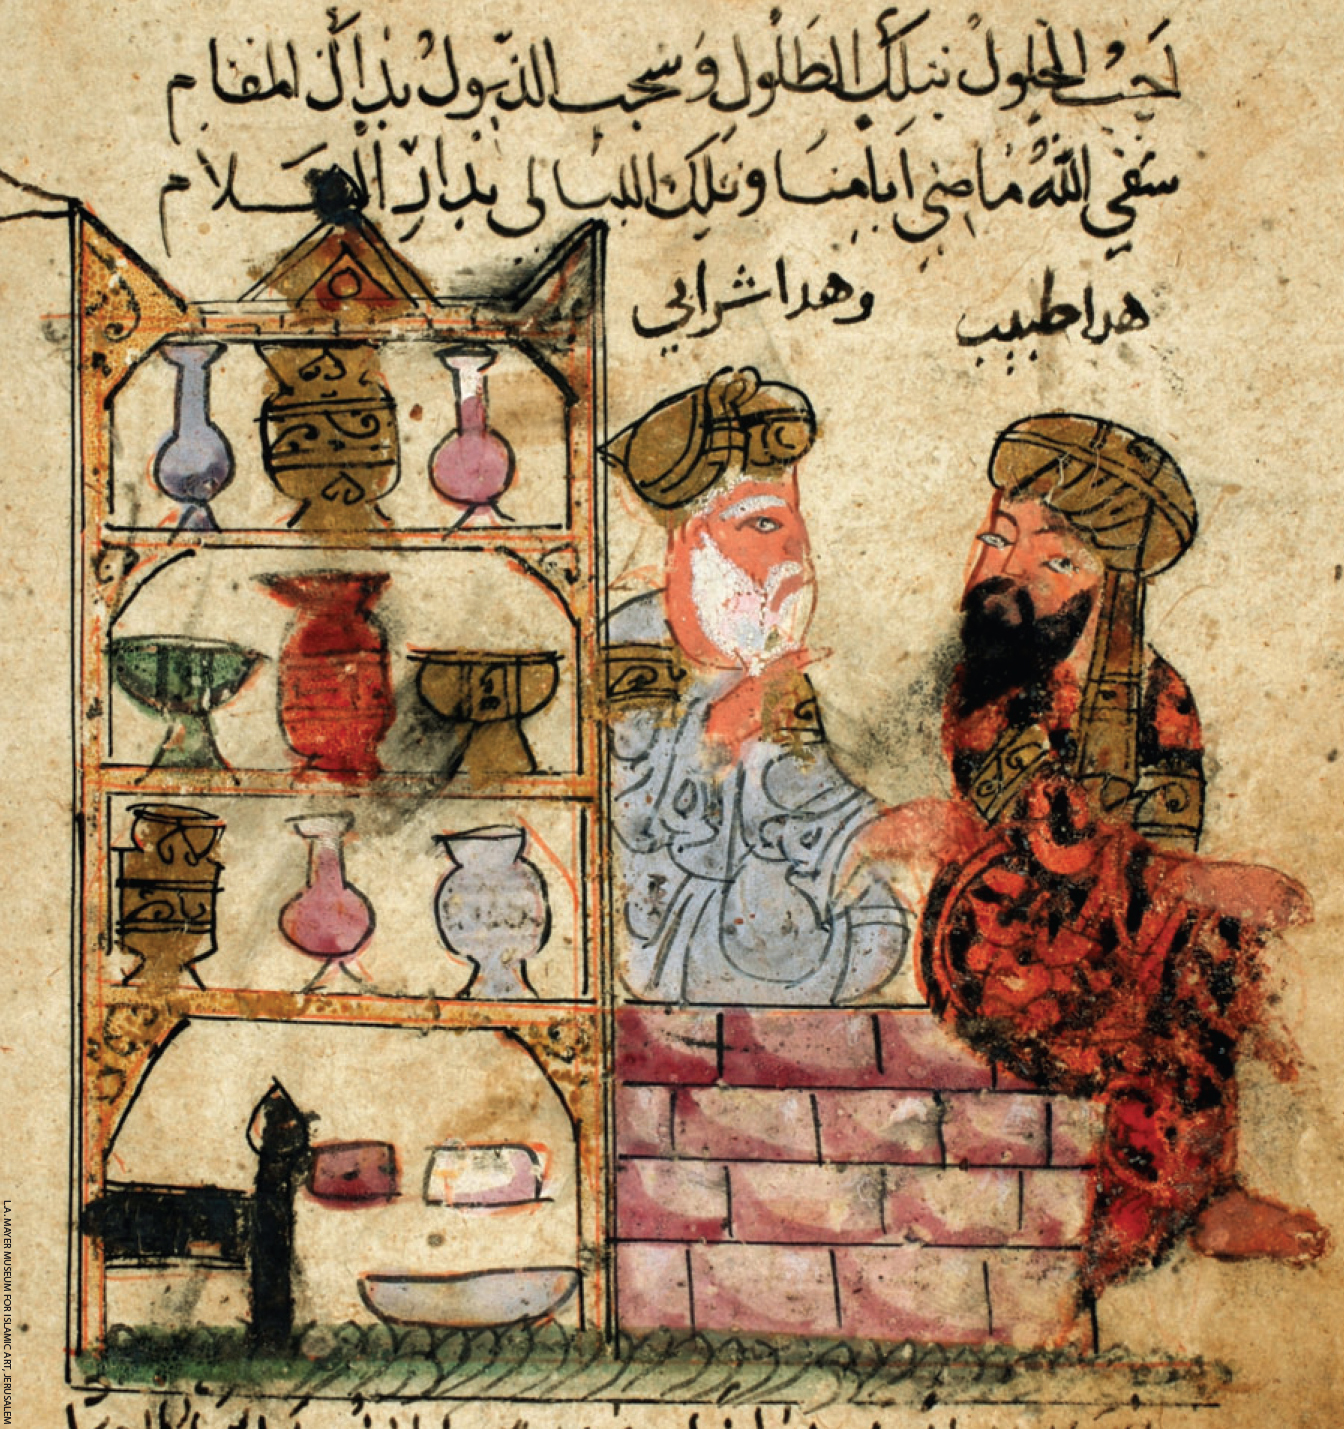 احب الحلول بتلك الطلول وسحب الذيول بذاك المقام
سقى الله ماضي ايامنا وتلك الليالي بدار السلام
هدا طبيب وهدا شرابي
L.A. MAYER MUSEUM FOR ISLAMIC ART, JERUSALEM